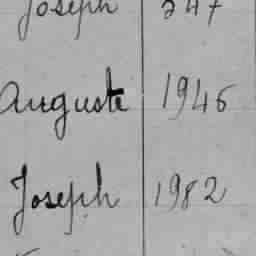 Joseph 247
Auguste 1946
Joseph 1982